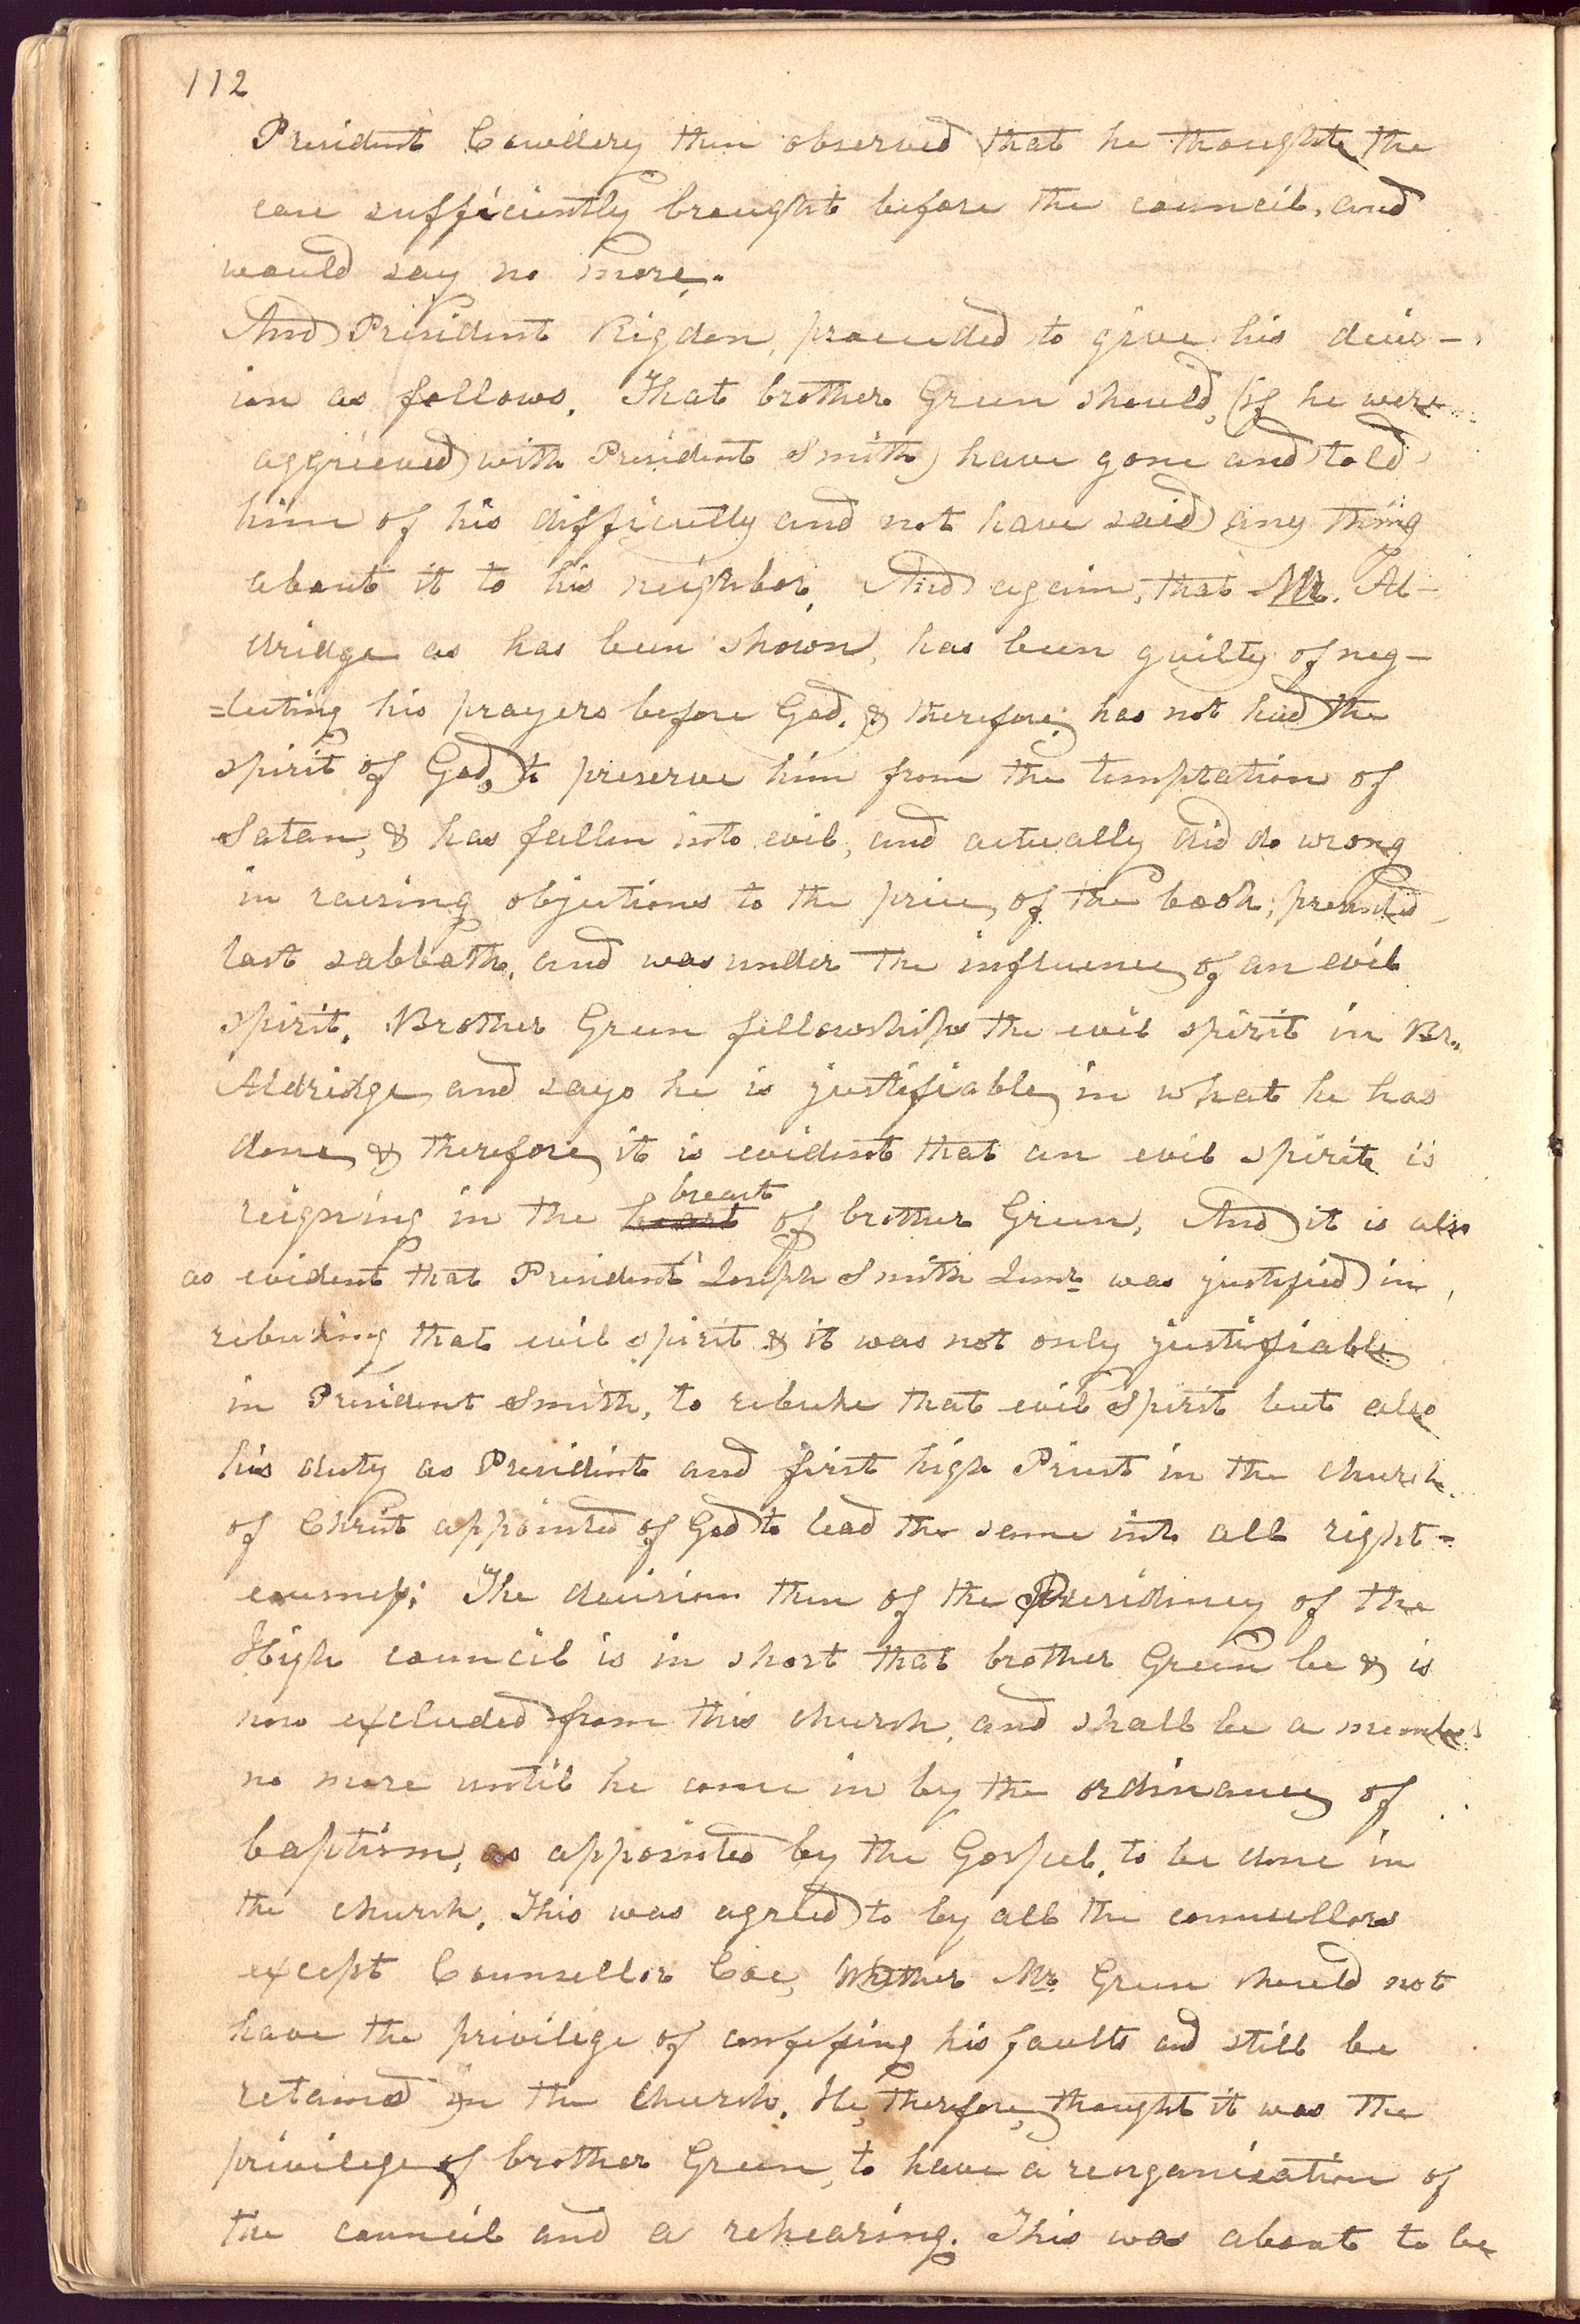 112
President Cowdery then observed that he thought the
case sufficiently brought before the council, and
would say no more.
And President Rigdon, proceeded to give his decis-
ion as follows. That brother Green should, (if he were
aggrieved with President Smith) have gone and told
him of his difficulty and not have said any thing
about it to his neighbor. And again, that Mr. Al-
dridge as has been shown, has been guilty of neg-
=lecting his prayers before God. & therefore, has not had the
spirit of God, to preserve him from the temptation of
Satan, & has fallen into evil, and actually did do wrong
in raising objections to the price of the book, presented
last sabbath, and was under the influence of an evil
spirit. Brother Green fellowships the evil spirit in Br.
Aldridge, and says he is justifiable in what he has
done, & therefore, it is evident that an evil spirit is
reigning in the heart breast of brother Green. And it is also
as evident that President Joseph Smith Junr. was justified in
rebuking that evil spirit & it was not only justifiable
in President Smith, to rebuke that evil spirit but also
his duty as President and first high Priest in the church
of Christ appointed of God to lead the same into all right-
eousness: The decision then of the Presidency of the
High council is in short that brother Green be & is
now excluded from this church, and shall be a member
no more until he come in by the ordinance of
baptism, as appointed by the Gospel, to be done in
the church. This was agreed to by all the counsellors
except Counsellor Coe, Whether Mr. Green should not
have the privilege of confessing his faults and still be
retained in the church. He, therefore, thought it was the
privilege of brother Green, to have a reorganization of
the council and a rehearing. This was about to be